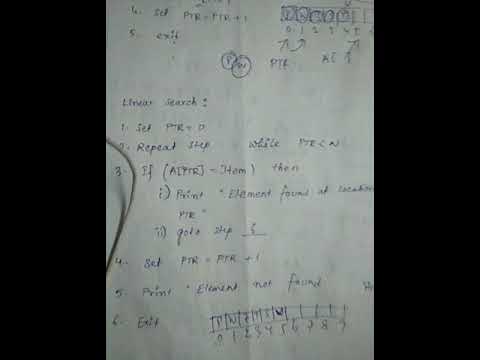 4. Set PTR = PTR + 1
5. exit
0 1 2 3 4 5
PTR
Linear Search :
1. Set PTR = 0
2. Repeat Step while PTR < N
3. If (A[PTR] = Item) then
i) Print "Element found at location
PTR"
ii) goto step 6
4. Set PTR = PTR + 1
5. Print "Element not found
6. Exit
0 1 2 3 4 5 6 7 8 9